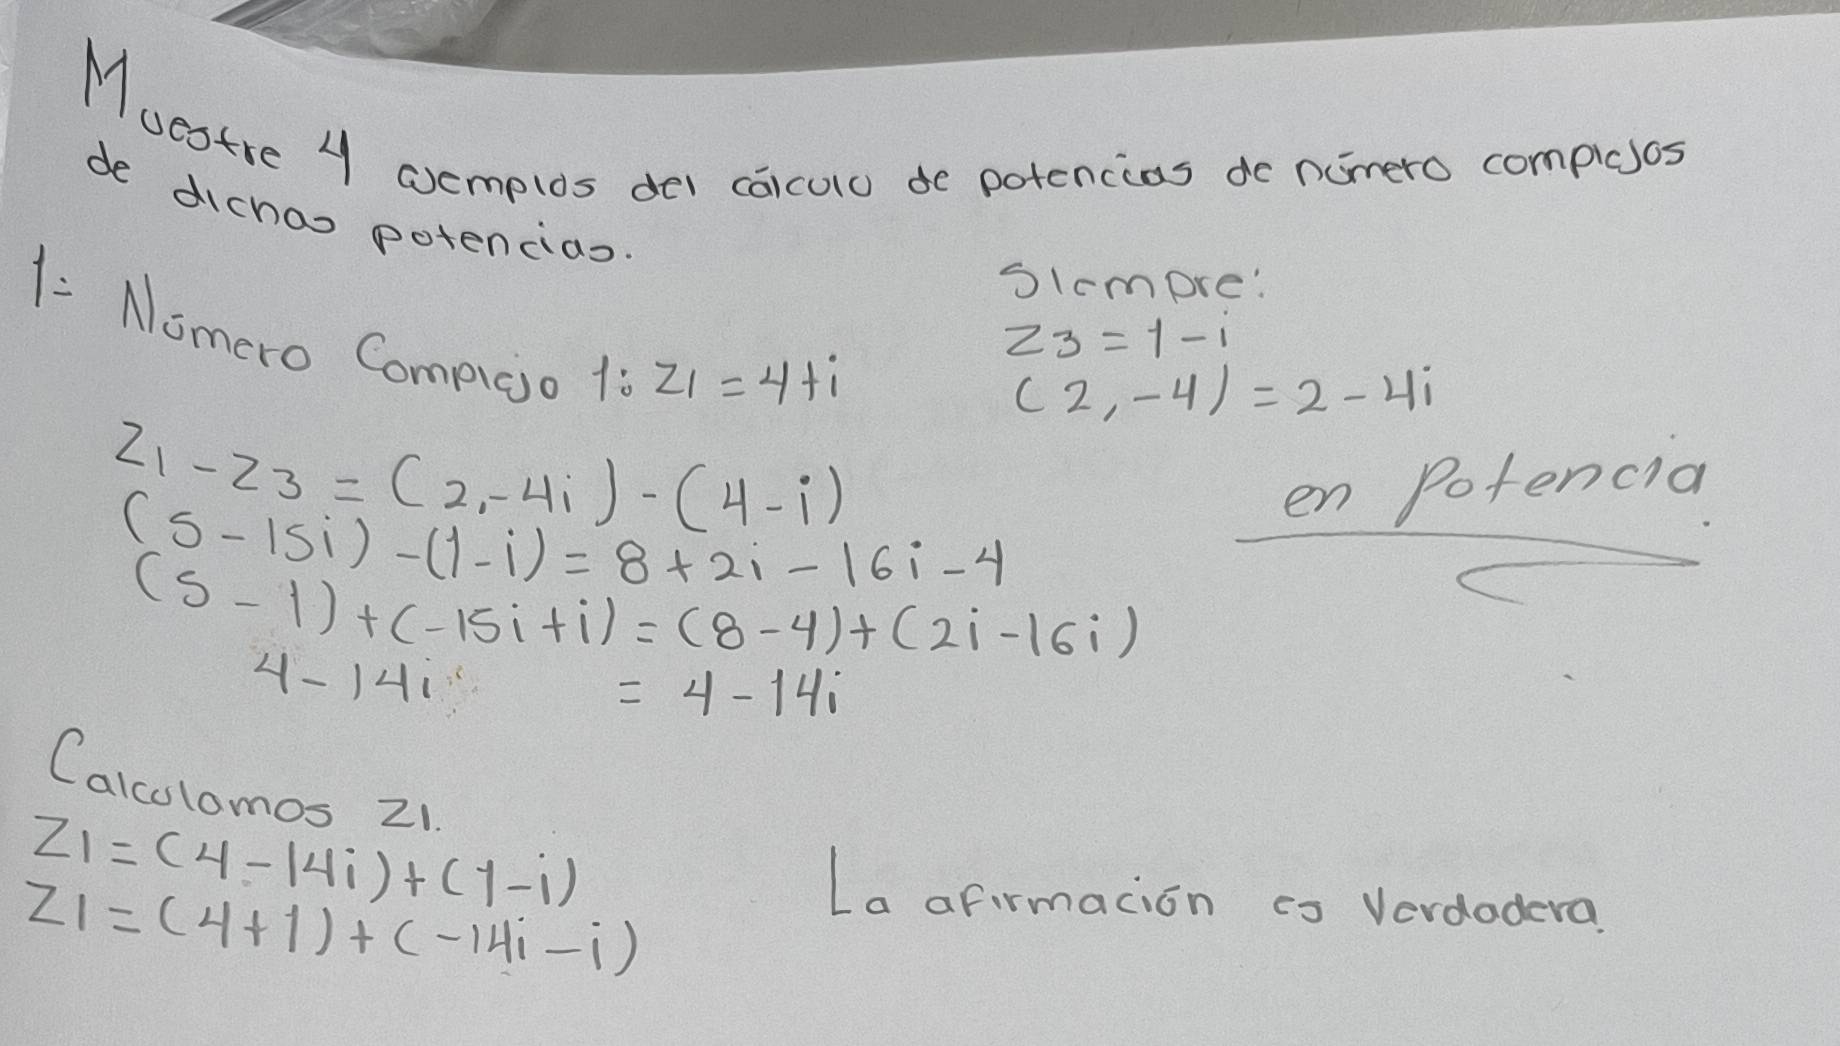 Muestre 4 ejemplos del cálculo de potencias de número complejos
de dichas potencias.
1= Número Complejo 1: Z1 = 4+i
Siempre:
Z3 = 1-i
(2,-4) = 2-4i
Z1-Z3 = (2,-4i)-(4-i)
(5-15i)-(1-i) = 8+2i-16i-4
(5-1)+(-15i+i) = (8-4)+(2i-16i)
4-14i = 4-14i
en Potencia.
Calculamos Z1.
Z1 = (4-14i)+(1-i)
Z1 = (4+1)+(-14i-i)
La afirmación es Verdadera.